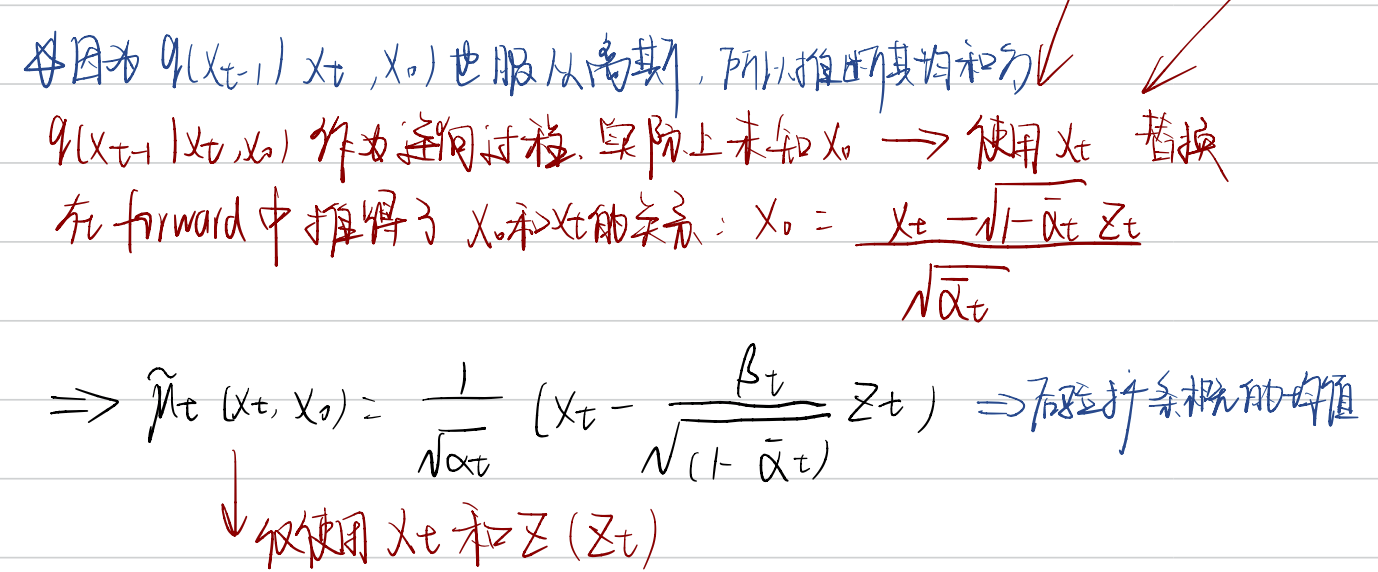 因为 q(x_{t-1}|x_t, x_0) 也服从高斯, 所以推断其均和方
q(x_{t-1}|x_t, x_0) 作为逆向过程. 实际上未知 x_0 → 使用 x_t 替换
在 forward 中推得了 x_0 和 x_t 的关系: x_0 = (x_t - √(1-ᾱ_t) z_t) / √ᾱ_t
⇒ μ̃_t (x_t, x_0) = 1/√α_t (x_t - β_t/√(1-ᾱ_t) z_t) ⇒ 后验 条概的均值
↓ 仅使用 x_t 和 z (z_t)